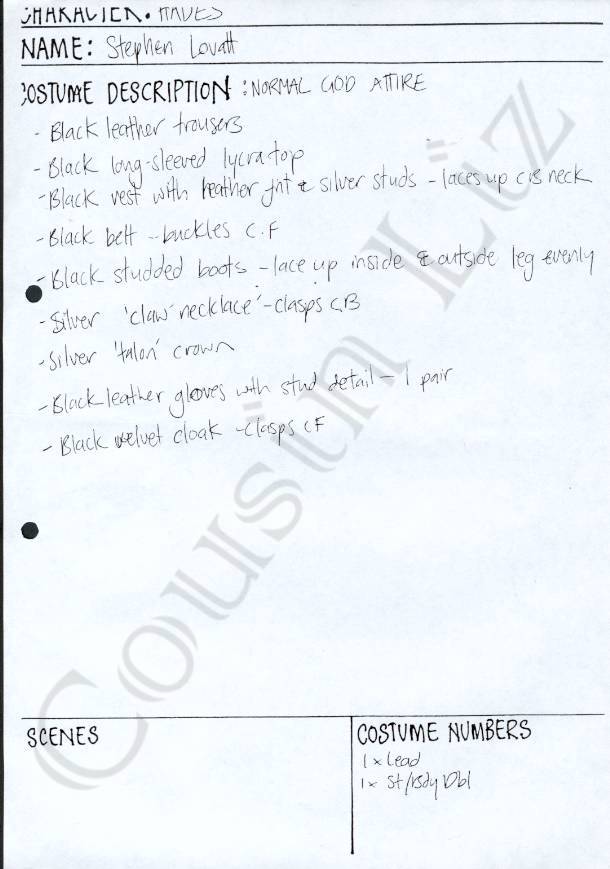 CHARACTER: HADES
NAME: Stephen Lovatt
COSTUME DESCRIPTION: NORMAL GOD ATTIRE
- Black leather trousers
- Black long-sleeved lycra top
- Black vest with leather fnt & silver studs - laces up C.B neck
- Black belt - buckles C.F
- Black studded boots - lace up inside & outside leg evenly
- Silver 'claw necklace' - clasps C.B
- Silver 'talon' crown
- Black leather gloves with stud detail - 1 pair
- Black velvet cloak - clasps CF
Cousin Liz
SCENES
COSTUME NUMBERS
1 x Lead
1 x St/ Dbl